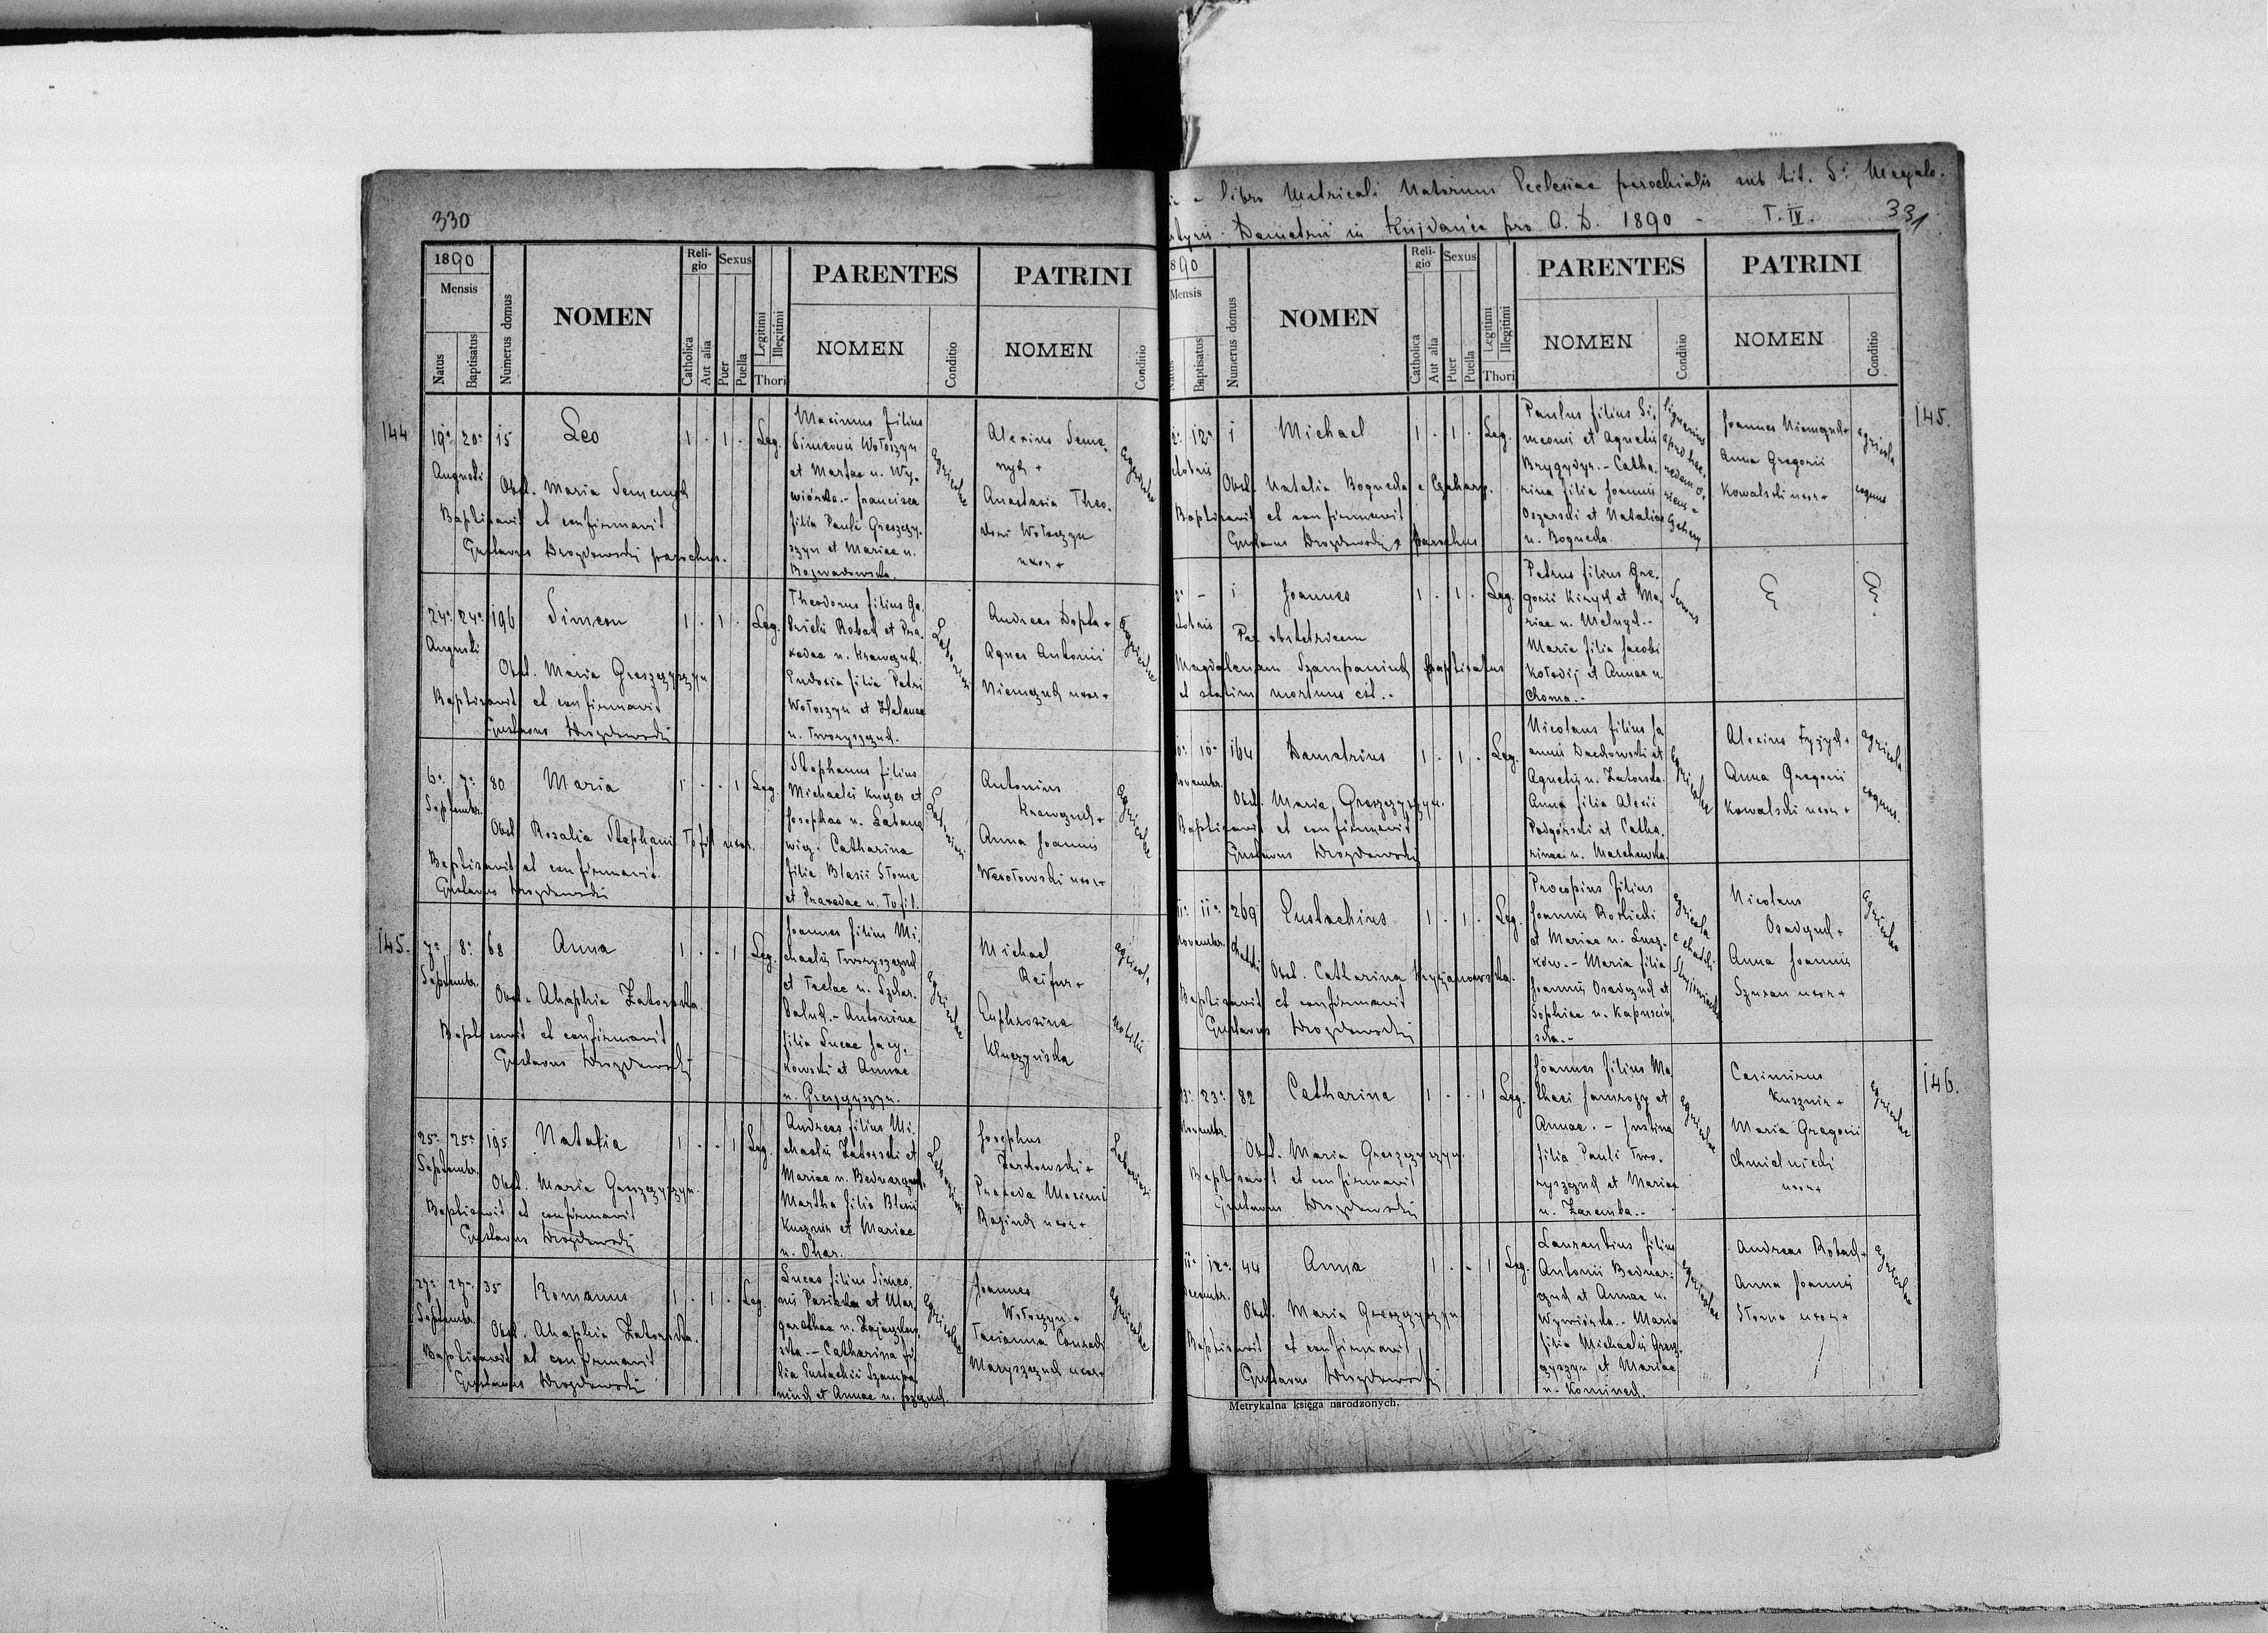 330
1890
Mensis
Natus
Baptisatus
Numerus domus
NOMEN
Reli-
gio
Catholica
Aut alia
Sexus
Puer
Puella
Legitimi
Illegitimi
Thori
PARENTES
NOMEN
Conditio
PATRINI
NOMEN
Conditio
144
19a 20a 15 Leo 1 . 1 . Leg.
Augusti
Obst. Maria Semenych
Baptisavit et confirmavit
Gustavus Drozdowski parochus.
Maximus filius
Simeonis Wołoszyn
et Marthae n. Wy-
wiórska.- Francisca
filia Pauli Greszczy-
szyn et Mariae n.
Rozwadowska.
agricolae
Alexius Seme-
nych +
Anastasia Theo-
dori Wołoszyn
uxor +
agricolae
24a 24a 196 Simeon 1 . 1 . Leg.
Augusti
Obst. Maria Greszczyszyn
Baptisavit et confirmavit
Gustavus Drozdowski
Theodorus filius Ga-
brielis Robak et Pra-
xedae n. Krawczuk.
Eudoxia filia Petri
Wołoszyn et Helenae
n. Tworyszczuk.
Laboriosi
Andreas Dopta +
Agnes Antonii
Niemczuk uxor +
agricolae
6a 7a 80 Maria 1 . . 1 Leg.
Septembr.
Obst. Rosalia Stephani Tofil uxor.
Baptisavit et confirmavit
Gustavus Drozdowski
Stephanus filius
Michaelis Knezer et
Josephae n. Laband
wicz. Catharina
filia Blasii Stoma
et Praxedae n. Tofil.
Laboriosi
Antonius
Krawczuk +
Anna Joannis
Wesołowski uxor +
agricolae
145.
7a 8a 68 Anna 1 . . 1 Leg.
Septembr.
Obst. Ahaphia Zatorska
Baptisavit et confirmavit
Gustavus Drozdowski
Joannes filius Mi-
chaelis Tworyszczuk
et Teclae n. Szkar-
baluk.- Antonina
filia Lucae Jacy-
kowski et Annae
n. Greszczyszyn.
agricolae
Michael
Reifur +
Euphrosina
Kluczyńska
agricola
nobilis
25a 25a 195 Natalia 1 . . 1 Leg.
Septembr.
Obst. Maria Greszczyszyn.
Baptisavit et confirmavit
Gustavus Drozdowski
Andreas filius Mi-
chaelis Zatorski et
Mariae n. Bednarczuk.
Martha filia Blasii
Kusznir et Mariae
n. Ohar.
Laboriosi
Josephus
Zarkowski +
Praxeda Maximi
Rozink uxor +
Laboriosi
27a 27a 35 Romanus 1 . 1 . Leg.
Septembr.
Obst. Ahaphia Zatorska.
Baptisavit et confirmavit
Gustavus Drozdowski
Lucas filius Simeo-
nis Pasieka et Mar-
garethae n. Zajączkow-
ska.- Catharina fi-
lia Eustachii Szampa-
niuk et Annae n.
agricolae
Joannes
Wołoszyn +
Tacianna Conradi
Maryszczuk uxor +
agricolae
libro Metricali Natorum Ecclesiae parochialis sub tit. Si Megalo-
Demetrii in Knjdańcu pro A. D. 1890 - T. IV. 331
890
Mensis
Natus
Baptisatus
Numerus domus
NOMEN
Reli-
gio
Catholica
Aut alia
Sexus
Puer
Puella
Legitimi
Illegitimi
Thori
PARENTES
NOMEN
Conditio
PATRINI
NOMEN
Conditio
145.
12a 1 Michael 1 . 1 . Leg.
Obst. Natalia Bogucka e Czahary.
Baptisavit et confirmavit
Gustavus Drozdowski parochus
Paulus filius Si-
meonis et Agnetis
Brygydyr.- Catha-
rina filia Joannis
Oszarski et Nataliae
n. Bogucka.
Joannes Niemczuk +
Anna Gregorii
Kowalski uxor +
agricola
coquus
- 1 Joannes 1 . 1 . Leg.
Per obstetricem
Magdalenam Szampaniuk baptisatus
et statim mortuus est..
Petrus filius Gre-
gorii Kiryk et Ma-
riae n. Melnyk.-
Maria filia Jacobi
Kołodij et Annae n.
Choma.-
Servus
10a 164 Demetrius 1 . 1 . Leg.
Novembr.
Obst. Maria Greszczyszyn.
Baptisavit et confirmavit
Gustavus Drozdowski
Nicolaus filius Jo-
annis Dachowski et
Agnetis n. Zatorska.
Anna filia Alexii
Podgórski et Catha-
rinae n. Marchewka.
agricolae
Alexius Fyzyk +
Anna Gregorii
Kowalski uxor +
agricola
coquus.
11a 269 Eustachius 1 . 1 . Leg.
Novembr. chatki
Obst. Catharina Kryżanowska.
Baptisavit et confirmavit
Gustavus Drozdowski
Procopius filius
Joannis Rokicki
et Mariae n. Lusz-
ków.- Maria filia
Joannis Osadczuk et
Sophiae n. Kapuściń-
ska.-
agricola
e chatki
Nicolaus
Osadczuk +
Anna Joannis
Szuran uxor +
agricolae
146.
23a 82 Catharina 1 . . 1 Leg.
Novembr.
Obst. Maria Greszczyszyn.
Baptisavit et confirmavit
Gustavus Drozdowski
Joannes filius Ma-
thaei Jamrozy et
Annae.- Justina
filia Pauli Two-
ryszczuk et Mariae
n. Zaremba..
agricolae
Casimirus
Kusznir +
Maria Gregorii
Chmielnicki
uxor +
agricolae
11a 12a 44 Anna 1 . . 1 Leg.
Decembr.
Obst. Maria Greszczyszyn
Baptisavit et confirmavit
Gustavus Drozdowski
Laurentius filius
Antonii Bednar-
czuk et Annae n.
Wywiórska.. Maria
filia Michaelis Gresz-
czyszyn et Mariae
n. Kominek.
agricolae
Andreas Robak +
Anna Joannis
Stoma uxor +
agricolae
Metrykalna księga narodzonych.